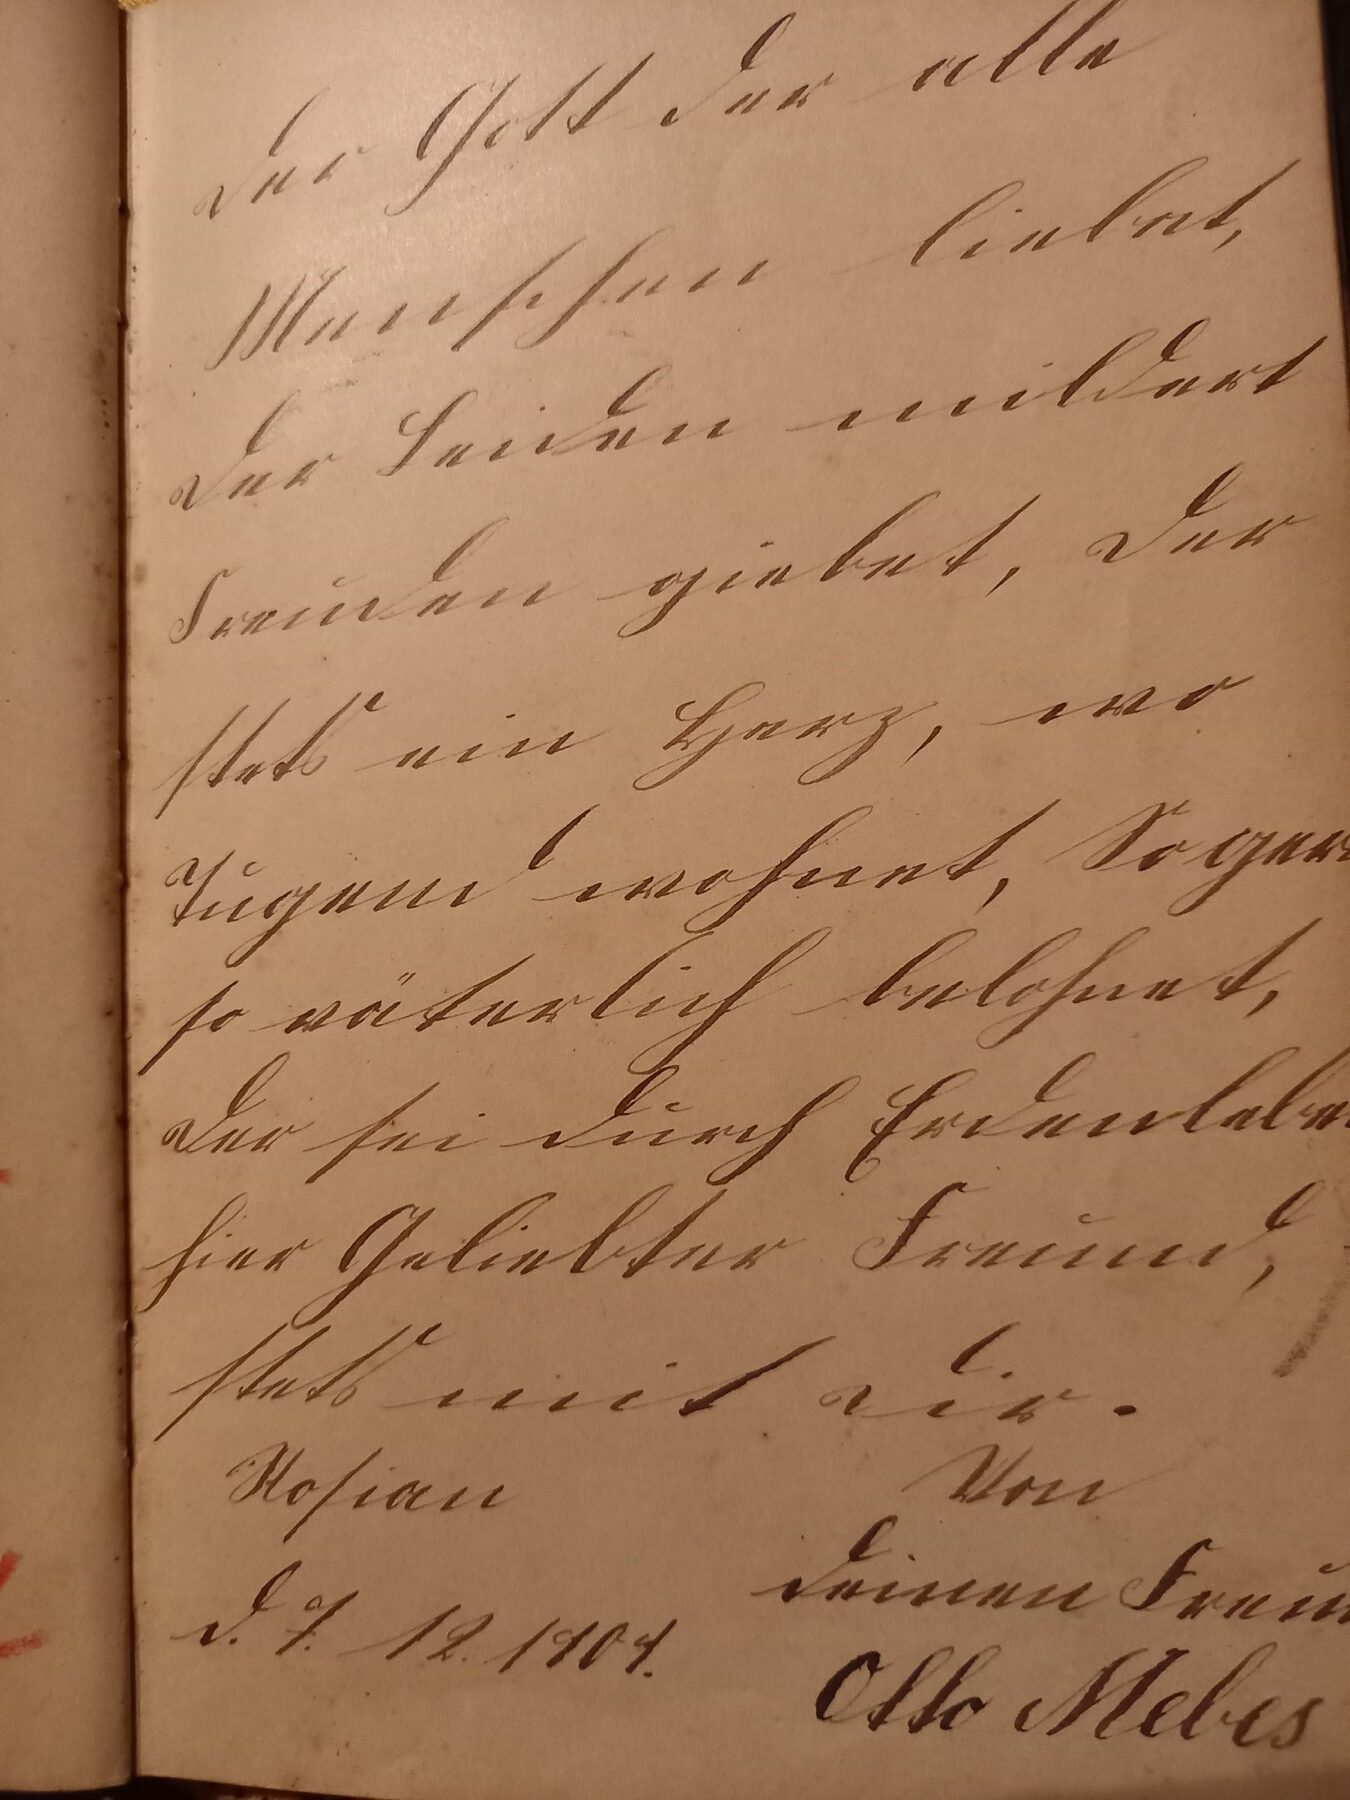 Der Gott der alle
Menschen liebet,
Der Leiden mildert
Freuden giebet, Der
stets ein Herz, wo
Tugend wohnet, So gern
so väterlich belohnet,
Der sei durch Erdenleben
hier Geliebter Freund,
stets mit dir.
Kosian Von
d. 7. 12. 1904. deinen Freund
Otto Mebes